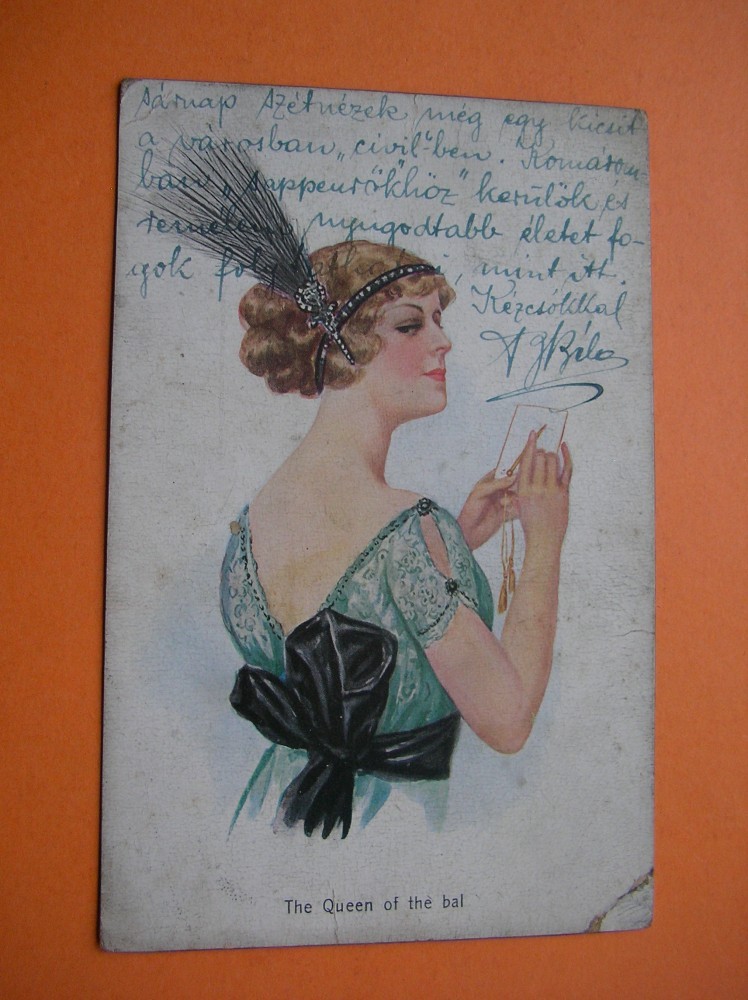 sárnap szétnézek még egy kicsit
a városban „civil"-ben. Komárom-
ban „sappeurökhöz" kerülök és
remélem, nyugodtabb életet fo-
gok folytathatni, mint itt.
Kézcsókkal
Béla
The Queen of the bal